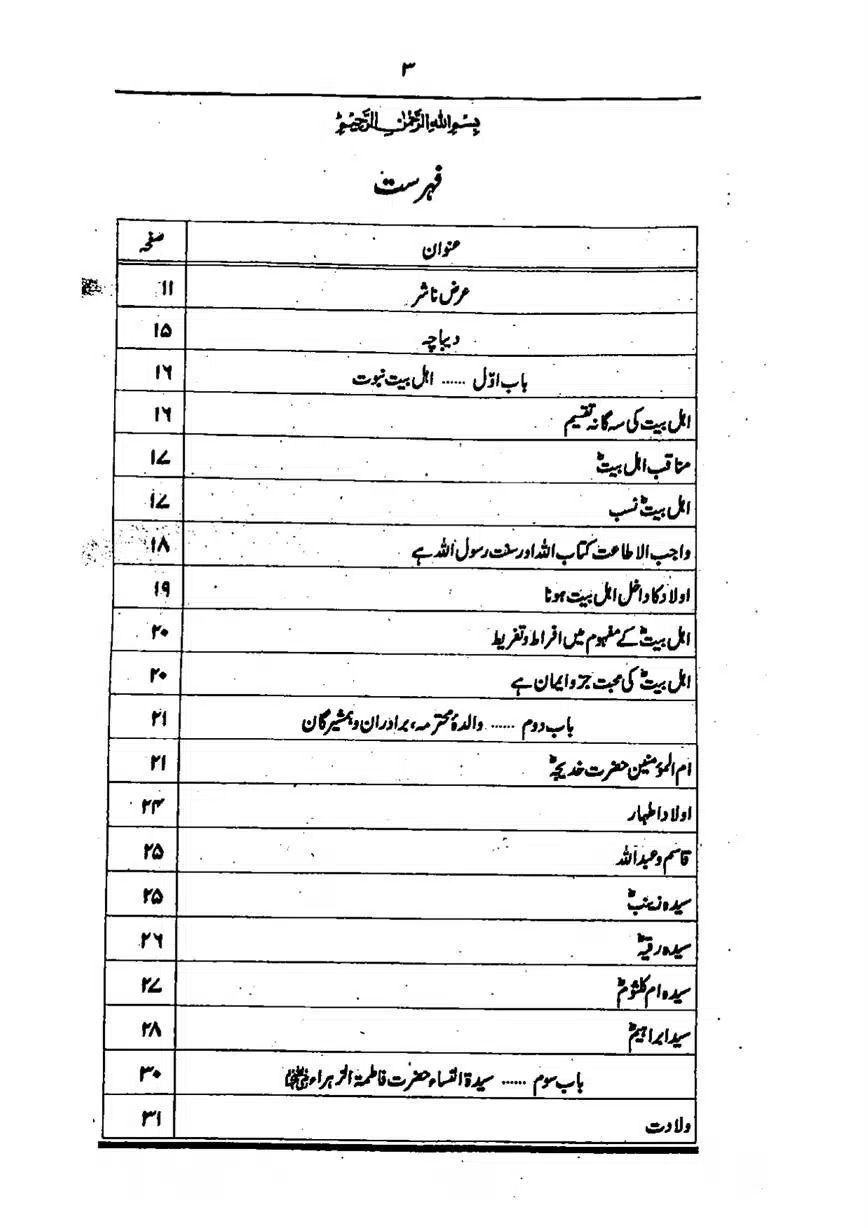 ۳
بسم اللہ الرحمٰن الرحیم
فہرست
عنوان صفحہ
عرض ناشر ۱۱
دیباچہ ۱۵
باب اوّل ...... اہل بیت نبوت ۱۶
اہل بیت کی سہ گانہ تقسیم ۱۶
مناقب اہل بیتؓ ۱۷
اہل بیتؓ نسب ۱۷
واجب الاطاعت کتاب اللہ اور سنت رسول اللہ ہے ۱۸
اولاد کا داخل اہل بیت ہونا ۱۹
اہل بیتؓ کے مفہوم میں افراط و تفریط ۲۰
اہل بیتؓ کی محبت جزو ایمان ہے ۲۰
باب دوم ...... والدۂ محترمہ، برادران و ہمشیرگان ۲۱
ام المؤمنین حضرت خدیجہؓ ۲۱
اولاد اطہار ۲۴
قاسم و عبداللہ ۲۵
سیدہ زینبؓ ۲۵
سیدہ رقیہؓ ۲۶
سیدہ ام کلثومؓ ۲۷
سید ابراہیمؓ ۲۸
باب سوم ...... سیدۃ النساء حضرت فاطمۃ الزہراء ۳۰
ولادت ۳۱